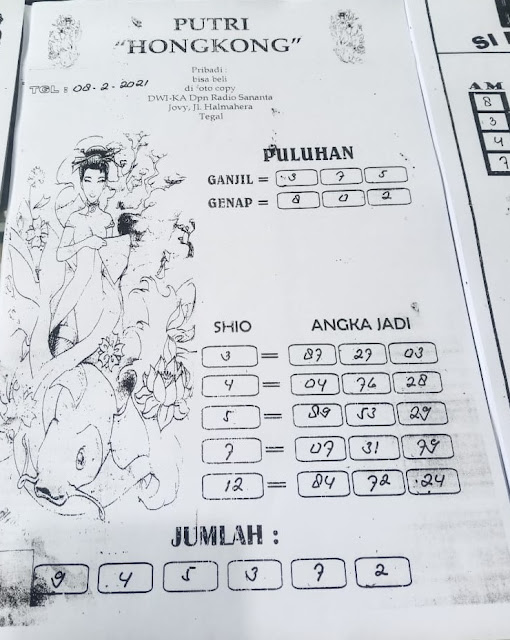 PUTRI
"HONGKONG"
Pribadi :
bisa beli
di foto copy
DWI-KA Dpn Radio Sananta
Jovy, Jl. Halmahera
Tegal
TGL : 08-2-2021
PULUHAN
GANJIL = 3 7 5
GENAP = 8 0 2
SHIO ANGKA JADI
3 = 87 27 03
4 = 04 76 28
5 = 89 53 29
7 = 07 31 79
12 = 84 72 24
JUMLAH :
9 4 5 3 7 2
SI
AM
8
3
4
7